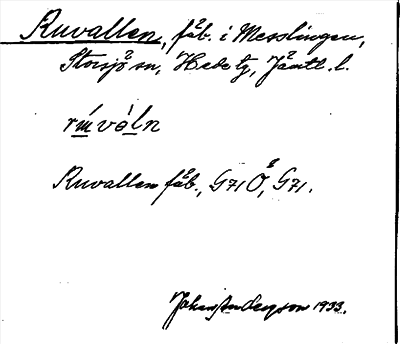 Ruvallen, fäb. i Messlingen,
Storsjö sn, Hede tg, Jämtl. l.
Ruvallen fäb., G71 Ö, G71.
Johan Anderson 1933.